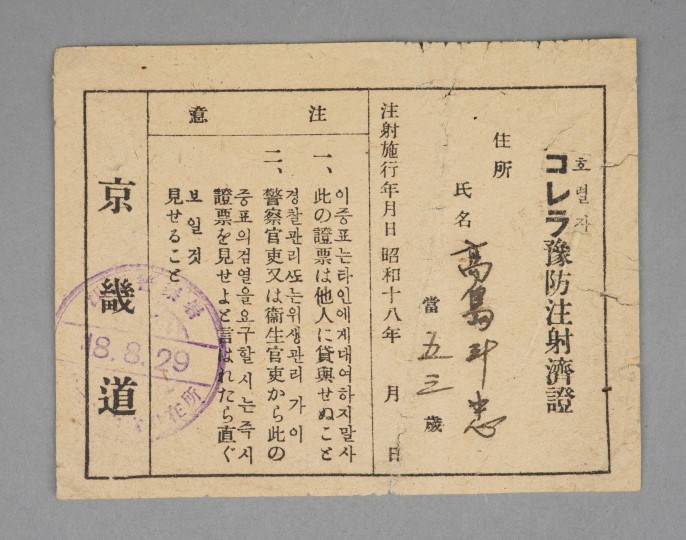 호렬자
コレラ豫防注射濟證
住所
氏名 高島斗忠
當 五三 歲
注射施行年月日 昭和十八年 月 日
注意
이증표는타인에게대여하지말사
一、此の證票は他人に貸與せぬこと
경찰관리又는위생관리가이
二、警察官吏又は衞生官吏から此の
증표의검열을요구할시는즉시
證票を見せよと言はれたら直ぐ
보일것
見せること
京畿道
18.8.29